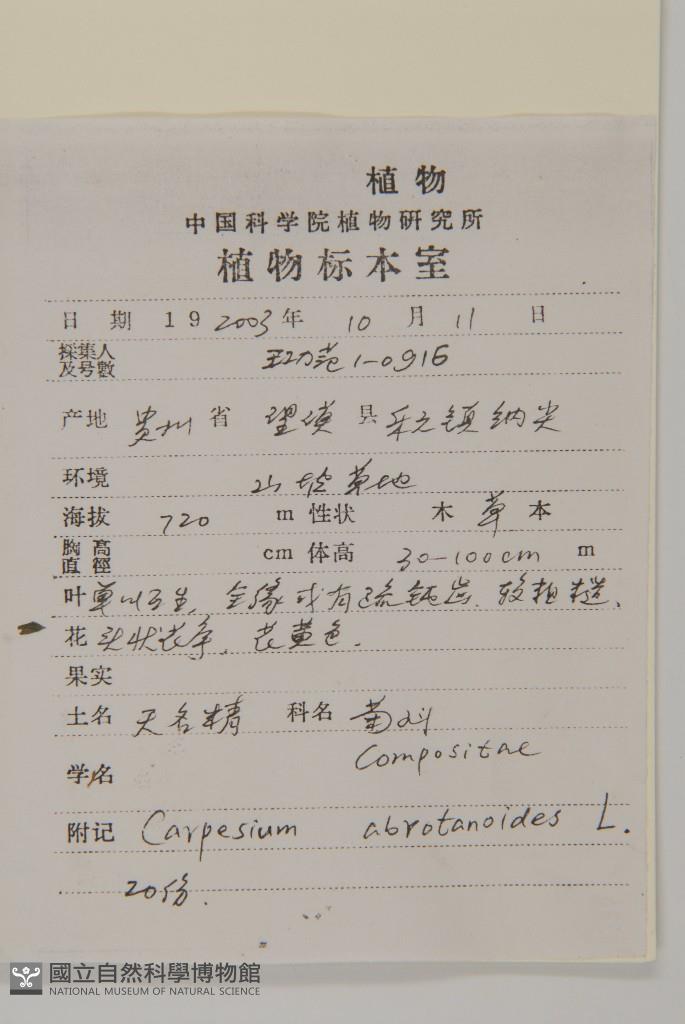 植物
中国科学院植物研究所
植物标本室
日 期 19 2003 年 10 月 11 日
採集人 及号數 王功范 1-0916
产地 贵州 省 望谟 县 乐元镇纳尖
环境 山坡草地
海拔 720 m 性状 木 草 本
胸高 直徑 cm 体高 30-100cm m
叶 单叶互生、全缘或有疏钝齿、较粗糙、
花 头状花序、花黄色.
果实
土名 天名精 科名 菊科
Compositae
学名
附记 Carpesium abrotanoides L.
20份.
國立自然科學博物館
NATIONAL MUSEUM OF NATURAL SCIENCE